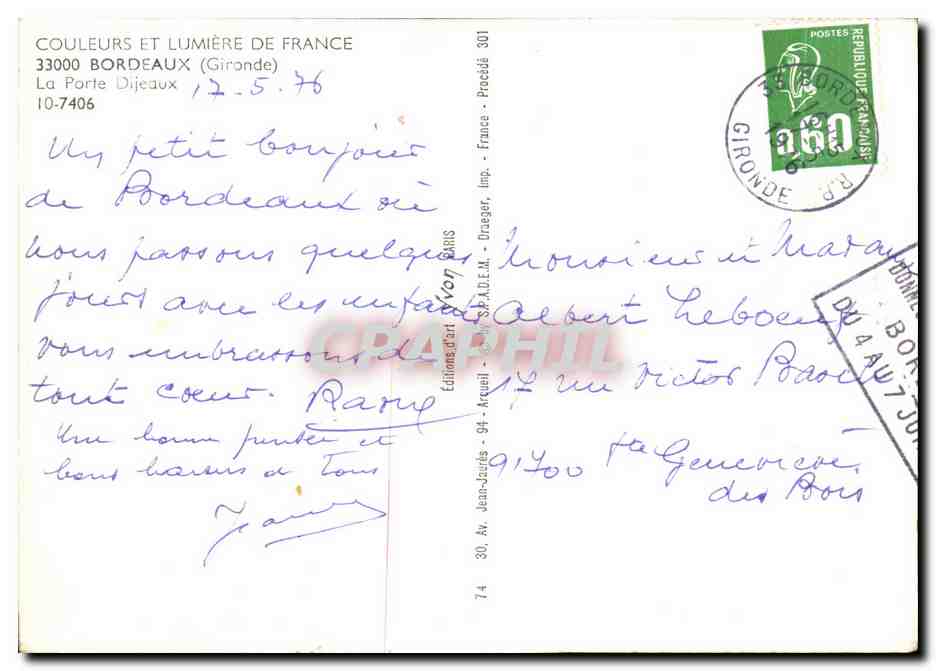 COULEURS ET LUMIÈRE DE FRANCE
33000 BORDEAUX (Gironde)
La Porte Dijeaux
10-7406
17-5-76
Un petit bonjour
de Bordeaux où
nous passons quelques
jours avec les enfants
vous embrassons de
tout cœur.
Une bonne pensée et
bons baisers à Tous
Editions d'art Yvon PARIS
74 30, Av. Jean-Jaurès - 94 - Arcueil - © by S.P.A.D.E.M. - Draeger, Imp. - France - Procédé 301
CPAPHIL
POSTES
REPUBLIQUE FRANÇAISE
0.60
33 BORDEAUX R.P.
GIRONDE
Monsieur et Madame
Albert Leboeuf
17 rue Victor
91700 Ste Geneviève
des Bois
DONNE
BOR
DU 4 AU 7 JUI